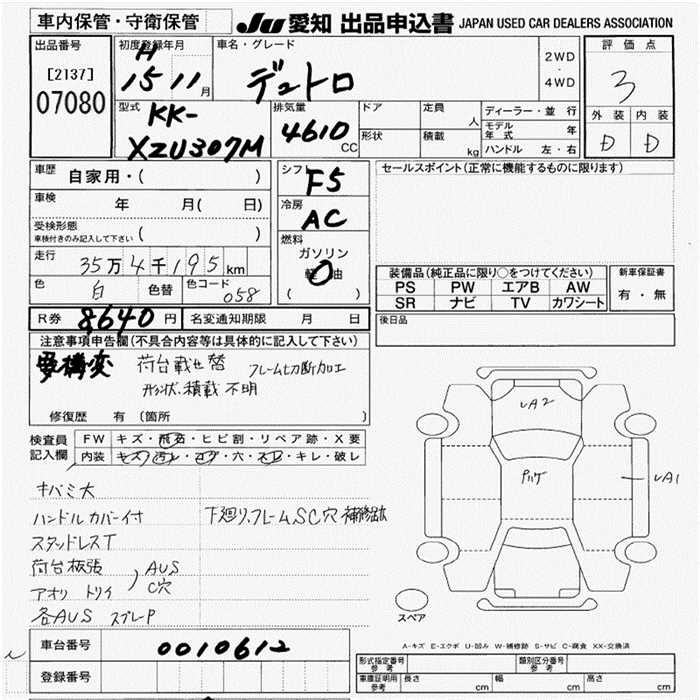 車内保管・守衛保管
JU 愛知 出品申込書 JAPAN USED CAR DEALERS ASSOCIATION
出品番号
[2137]
07080
初度登録年月
H
15 11月
車名・グレード
デュトロ
2WD
・
4WD
評価点
3
外装 内装
D D
型式
KK-
XZU307M
排気量
4610 CC
ドア
形状
定員 人
積載 kg
ディーラー・並行
モデル年式 年
ハンドル 左・右
車歴
自家用・( )
車検
年 月( 日)
受検形態
車検付きのみ記入して下さい ( )
走行
35万4千195km
色
白
色替
色コード
058
シフト
F5
冷房
AC
燃料
ガソリン
軽油
( )
セールスポイント(正常に機能するものに限ります)
装備品(純正品に限り○をつけてください)
PS PW エアB AW
SR ナビ TV カワシート
新車保証書
有・無
R券 8,640円
名変通知期限 月 日
後日品
注意事項申告欄(不具合内容等は具体的に記入して下さい)
要構変 荷台載せ替 フレーム切断加工
形状、積載 不明
修復歴 有 (箇所 )
検査員記入欄
FW キズ・飛石・ヒビ割・リペア跡・X要
内装 キズ・汚レ・コゲ・穴・スレ・キレ・破レ
キバミ大
ハンドルカバー付 下廻り、フレームSC穴 補修跡
スタッドレスT
荷台板張
アオリ トリイ
AUS
C穴
各AUS スプレP
UA2
UA1
スペア
A-キズ E-エクボ U-凹み W-補修跡 S-サビ C-腐食 XX-交換済
車台番号
0010612
登録番号
形式指定番号
参考
類別区分番号
参考
車庫証明用
参考
長さ cm
幅 cm
高さ cm